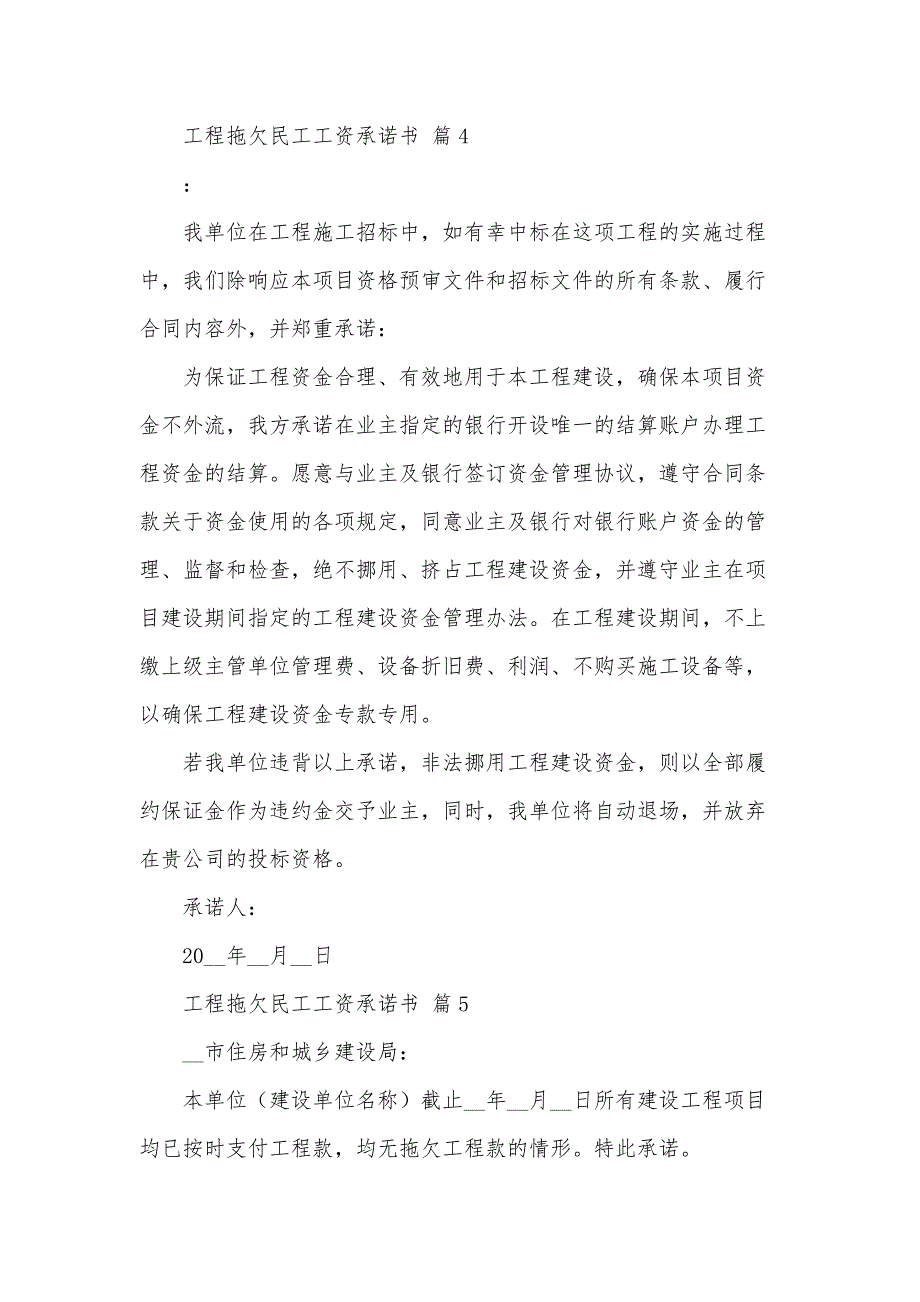 工程拖欠民工工资承诺书 篇4
：
我单位在工程施工招标中，如有幸中标在这项工程的实施过程
中，我们除响应本项目资格预审文件和招标文件的所有条款、履行
合同内容外，并郑重承诺：
为保证工程资金合理、有效地用于本工程建设，确保本项目资
金不外流，我方承诺在业主指定的银行开设唯一的结算账户办理工
程资金的结算。愿意与业主及银行签订资金管理协议，遵守合同条
款关于资金使用的各项规定，同意业主及银行对银行账户资金的管
理、监督和检查，绝不挪用、挤占工程建设资金，并遵守业主在项
目建设期间指定的工程建设资金管理办法。在工程建设期间，不上
缴上级主管单位管理费、设备折旧费、利润、不购买施工设备等，
以确保工程建设资金专款专用。
若我单位违背以上承诺，非法挪用工程建设资金，则以全部履
约保证金作为违约金交予业主，同时，我单位将自动退场，并放弃
在贵公司的投标资格。
承诺人：
20__年__月__日
工程拖欠民工工资承诺书 篇5
__市住房和城乡建设局：
本单位（建设单位名称）截止__年__月__日所有建设工程项目
均已按时支付工程款，均无拖欠工程款的情形。特此承诺。